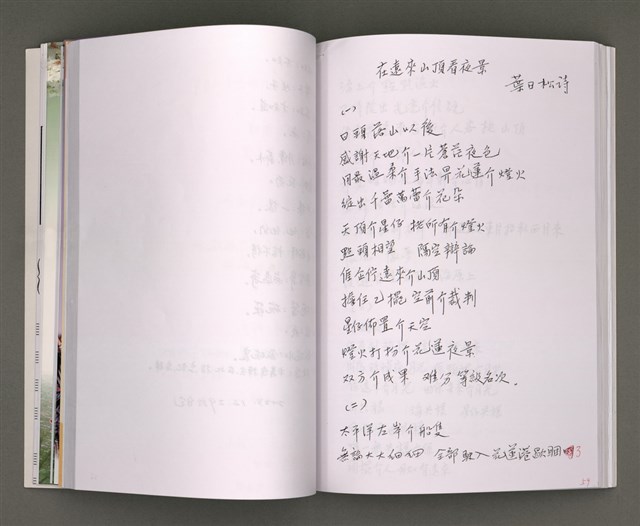 在遠來山頂看夜景
葉日松詩
(一)
日頭落山以後
感謝天地介一片蒼茫夜色
用最溫柔介手法畀花蓮介燈火
綻出千蕾萬蕾介花朵
天頂介星仔 挑所有介燈火
點頭相望 隔空辯論
𠊎企佇遠來介山頂
擔任 空前介裁判
星仔佈置介天空
燈火打扮介花蓮夜景
双方介成果 難分等級名次。
(二)
太平洋左岸介船隻
無論大大細細 全部駛入花蓮港